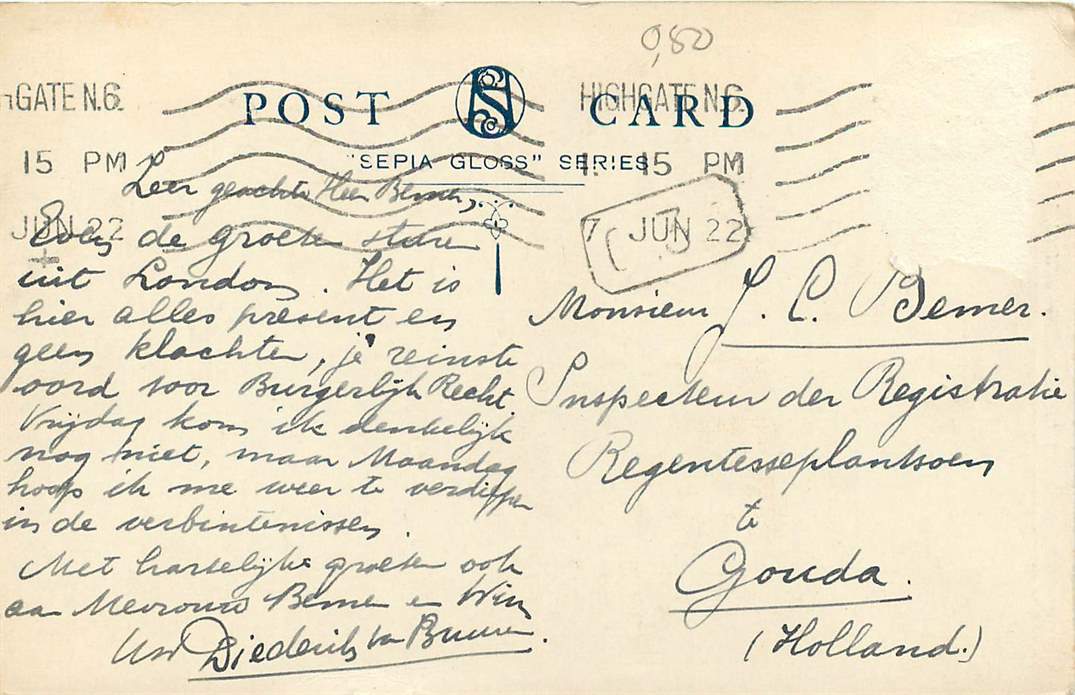 0,80
HGATE N.6.
HIGHGATE N.6.
POST CARD
15 PM
15 PM
"SEPIA GLOSS" SERIES
JUN 22
7 JUN 22
Zeer geachte Heer Bemer,
Even de groeten sturen
uit London. Het is
hier alles present en
geen klachten, je reinste
oord voor Burgerlijk Recht.
Vrijdag kom ik denkelijk
nog niet, maar Maandag
hoop ik me weer te verdiepen
in de verbintenissen.
Met hartelijke groeten ook
aan Mevrouw Bemer en Wim
Uw Diederik van Buuren.
Monsieur J. C. Bemer.
Inspecteur der Registratie
Regentesseplantsoen
te
Gouda.
(Holland.)